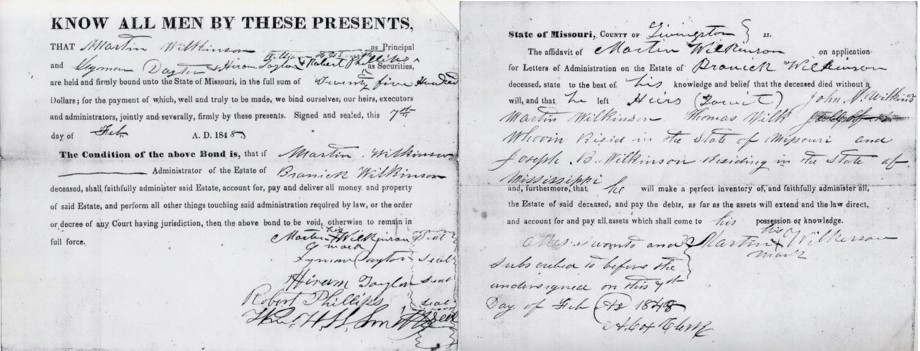 KNOW ALL MEN BY THESE PRESENTS,
THAT Martin Wilkinson as Principal
and Lyman Taylor & Hiram Taylor & Robert Phillips as Securities,
are held and firmly bound unto the State of Missouri, in the full sum of Twenty five Hundred
Dollars; for the payment of which, well and truly to be made, we bind ourselves, our heirs, executors
and administrators, jointly and severally, firmly by these presents. Signed and sealed, this 7th
day of Feb A. D. 1848
The Condition of the above Bond is, that if Martin Wilkinson
Administrator of the Estate of Branick Wilkinson
deceased, shall faithfully administer said Estate, account for, pay and deliver all money and property
of said Estate, and perform all other things touching said administration required by law, or the order
or decree of any Court having jurisdiction, then the above bond to be void, otherwise to remain in
full force.
his
Martin X Wilkinson Seal
mark
Lyman Taylor Seal
Hiram Taylor Seal
Robert Phillips Seal
Wm. H. Smith Seal
State of Missouri, COUNTY OF Livingston } ss.
The affidavit of Martin Wilkinson on application
for Letters of Administration on the Estate of Branick Wilkinson
deceased, state to the best of his knowledge and belief that the deceased died without a
will, and that he left Heirs (Towit) John M. Wilkins
Martin Wilkinson Thomas Wilk
in the State of Missouri and
Joseph B. Wilkinson residing in the State of
Mississippi
and, furthermore, that he will make a perfect inventory of, and faithfully administer all,
the Estate of said deceased, and pay the debts, as far as the assets will extend and the law direct,
and account for and pay all assets which shall come to his possession or knowledge.
his
sworn to and Martin X Wilkerson
mark
subscribed to before the
undersigned on this 7th
Day of Feb AD 1848
A Cox Clerk